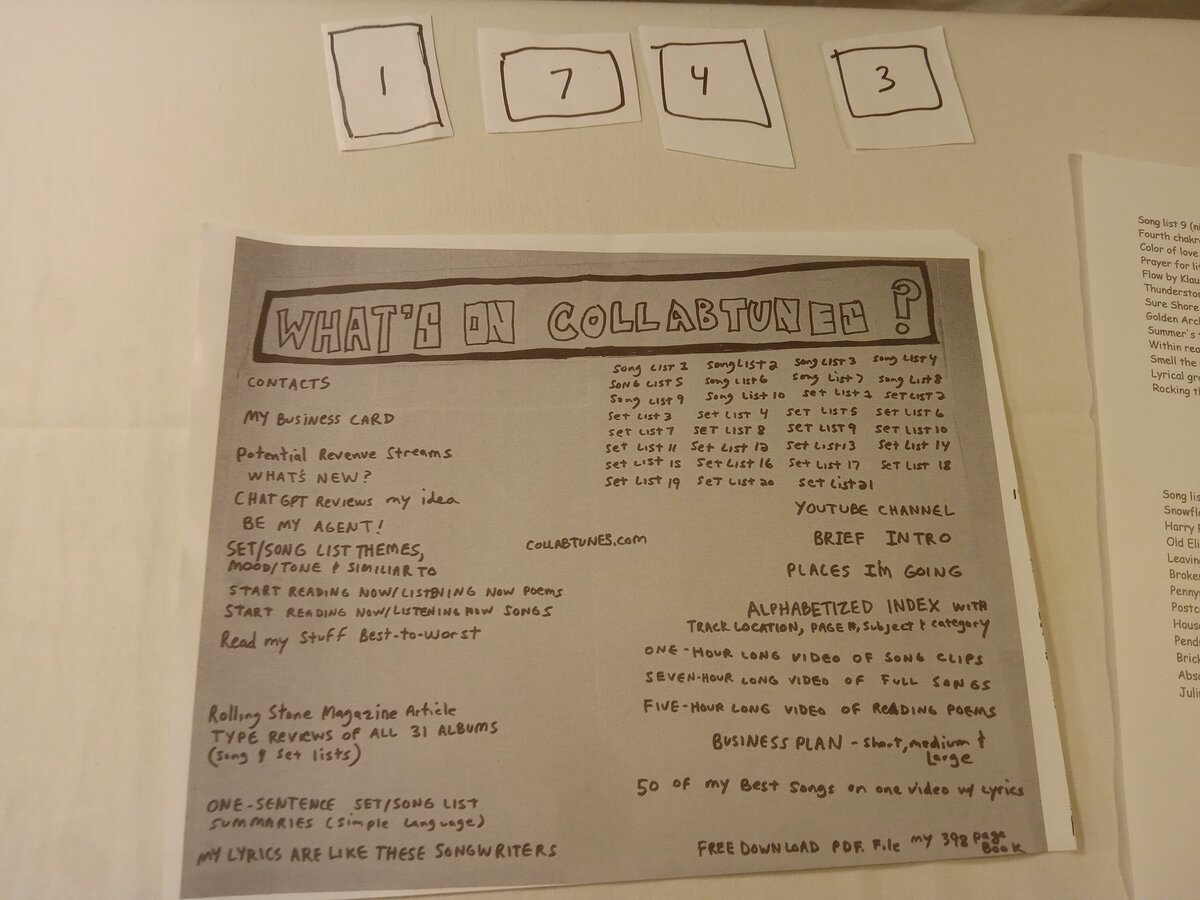 1 7 4 3
WHAT'S ON COLLABTUNES?
CONTACTS
MY BUSINESS CARD
Potential Revenue Streams
WHAT'S NEW?
CHATGPT Reviews my idea
BE MY AGENT!
SET/SONG LIST THEMES,
MOOD/TONE & SIMILIAR TO
START READING NOW/LISTENING NOW POEMS
START READING NOW/LISTENING NOW SONGS
Read my Stuff Best-to-Worst
Rolling Stone Magazine Article
TYPE REVIEWS OF ALL 31 ALBUMS
(Song & Set lists)
ONE-SENTENCE SET/SONG LIST
SUMMARIES (Simple Language)
MY LYRICS ARE LIKE THESE SONGWRITERS
COLLABTUNES.COM
Song LIST 1 Song LIST 2 Song LIST 3 Song LIST 4
SONG LIST 5 Song LIST 6 Song LIST 7 Song LIST 8
Song LIST 9 Song LIST 10 Set LIST 1 SET LIST 2
Set LIST 3 Set LIST 4 SET LIST 5 SET LIST 6
SET LIST 7 SET LIST 8 SET LIST 9 SET LIST 10
Set LIST 11 Set LIST 12 Set LIST 13 SET LIST 14
Set LIST 15 Set LIST 16 Set LIST 17 SET LIST 18
Set LIST 19 SET LIST 20 Set LIST 21
YOUTUBE CHANNEL
BRIEF INTRO
PLACES I'M GOING
ALPHABETIZED INDEX WITH
TRACK LOCATION, PAGE #, Subject & category
ONE-HOUR LONG VIDEO OF SONG CLIPS
SEVEN-HOUR LONG VIDEO OF FULL SONGS
FIVE-HOUR LONG VIDEO OF READING POEMS
BUSINESS PLAN - Short, medium &
Large
50 OF my Best Songs on one video w/ Lyrics
FREE DOWNLOAD PDF. File my 398 page
Book
Song list 9
Fourth
Color of love
Prayer for
Flow by
Sure Shore
Golden
Summer's
Within
Smell the
Lyrical
Rocking
Song
Harry
Old
Leaving